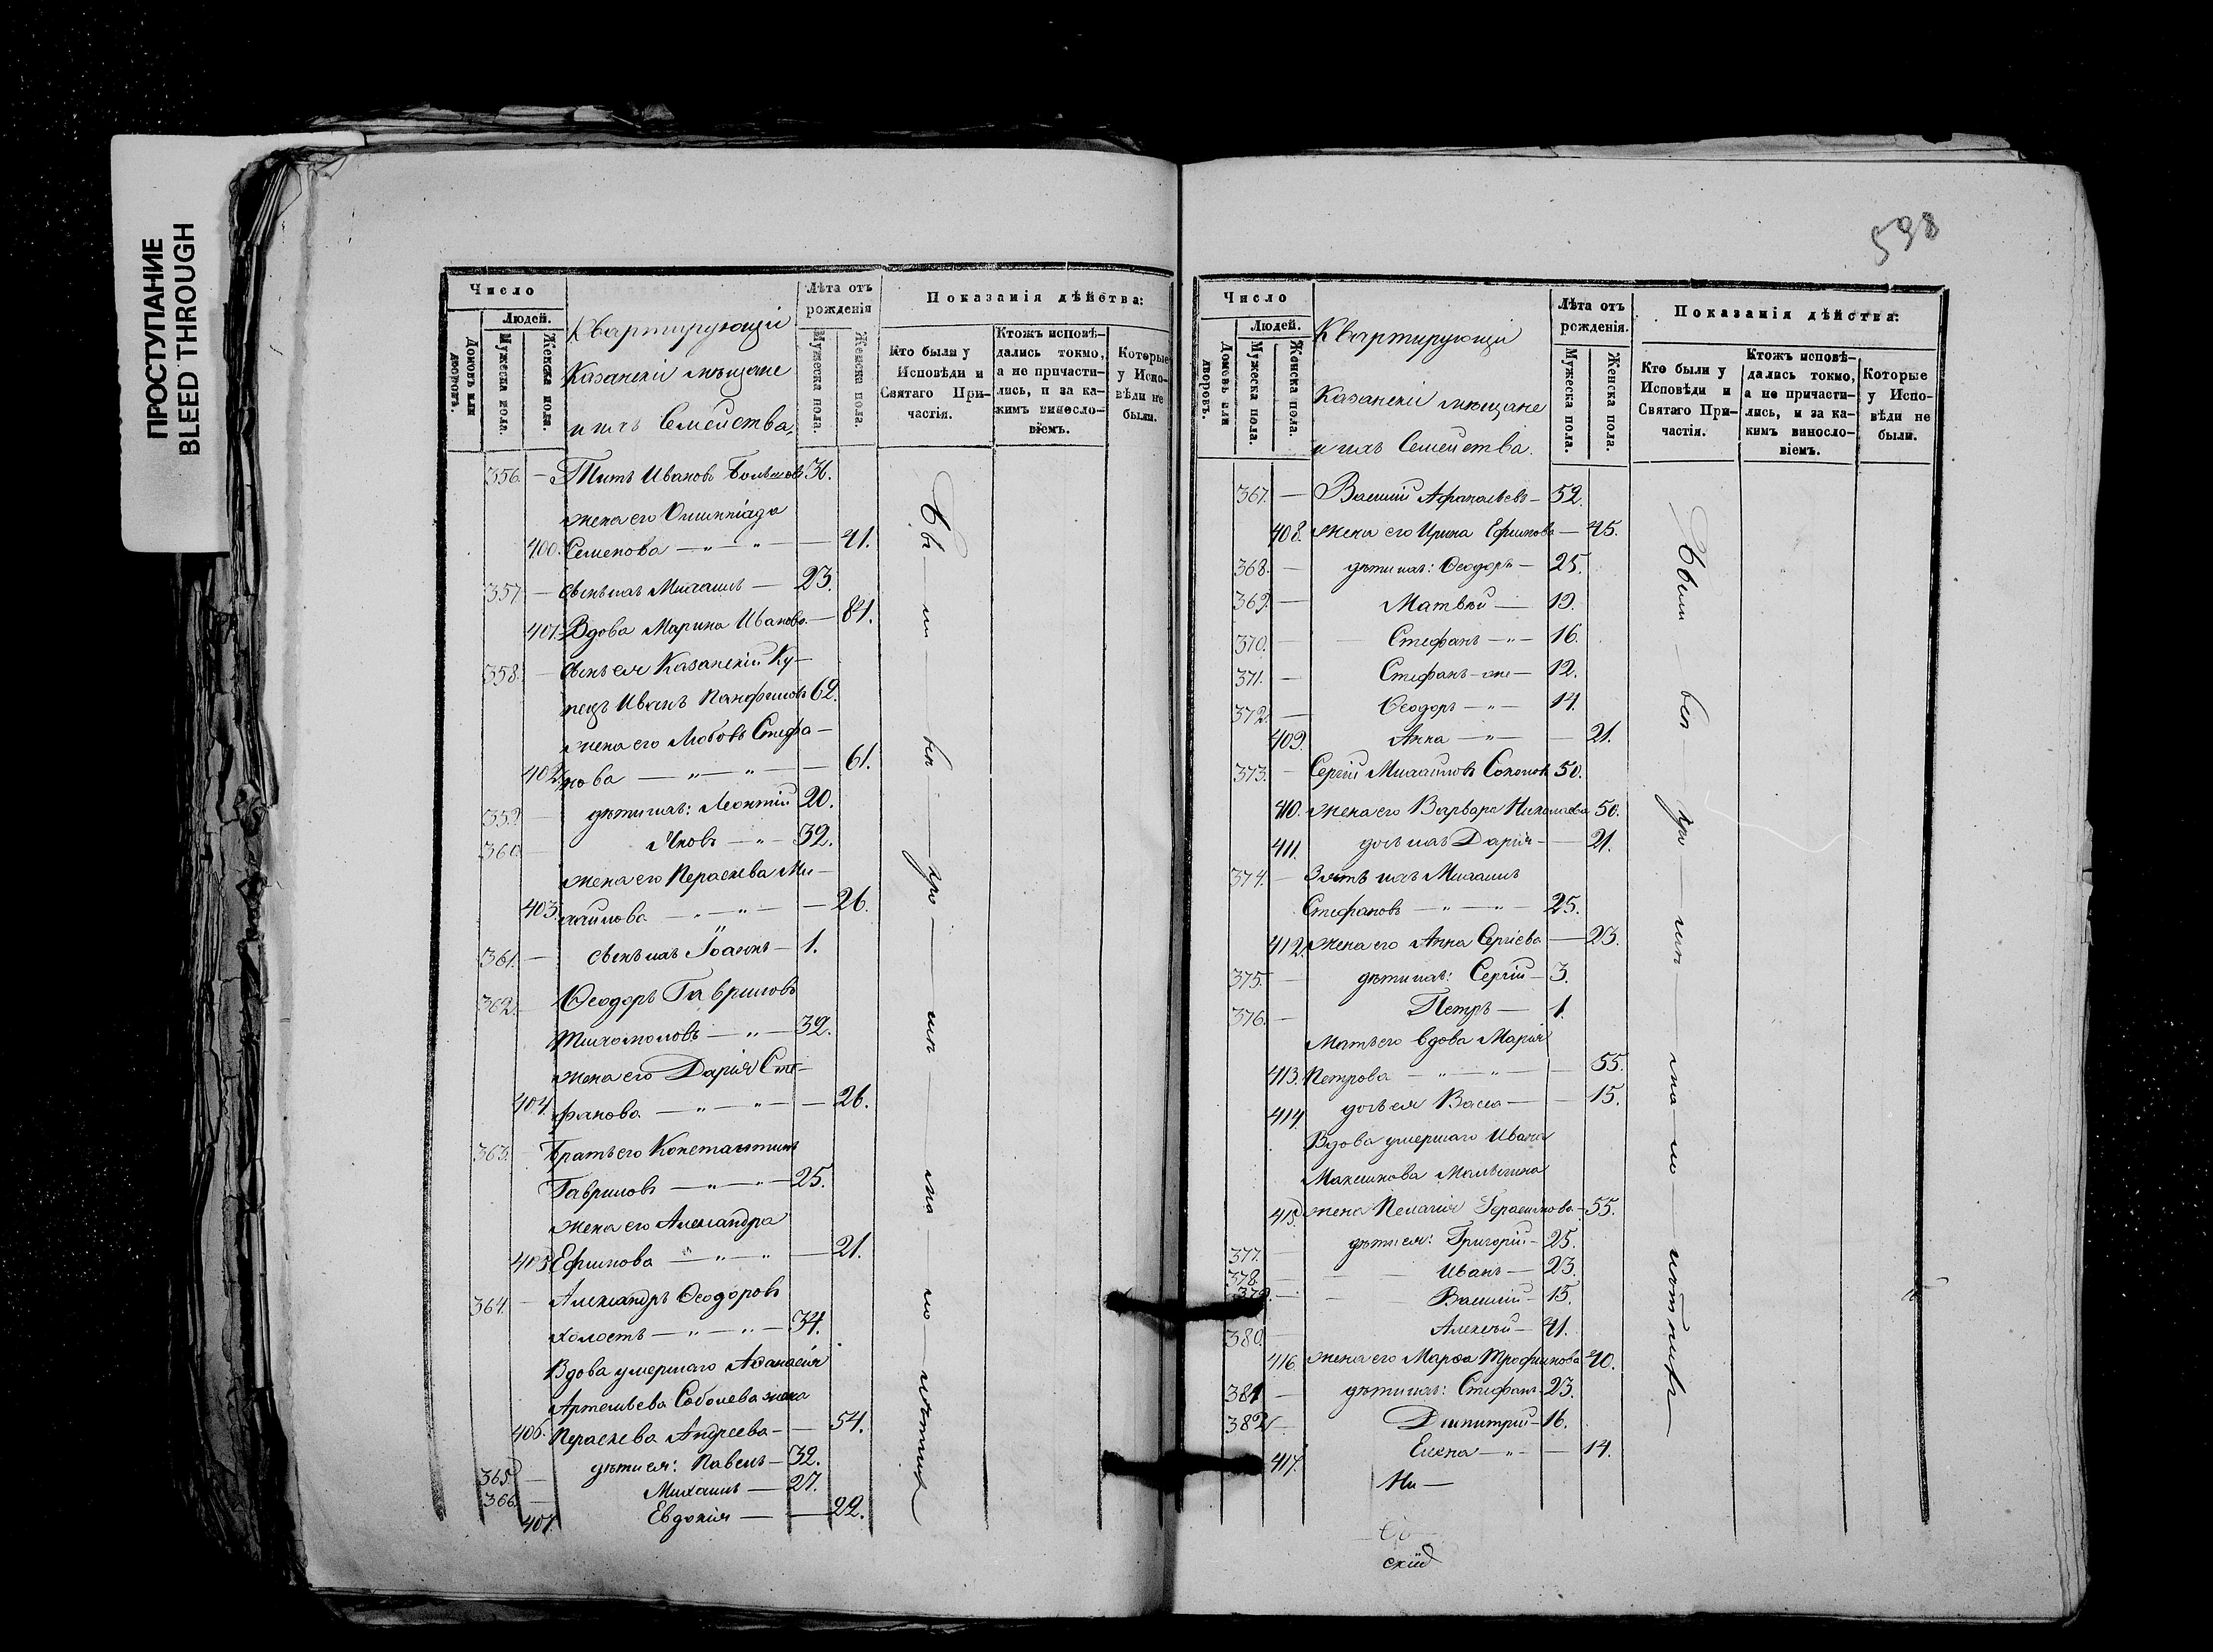 ПРОСТУПАНИЕ
BLEED THROUGH
Число
Людей.
Домовъ или дворовъ.
Мужеска пола.
Женска пола.
Квартирующіи
Казанскіи мѣщане
и ихъ Семейства.
Лѣта отъ рожденія
Мужеска пола.
Женска пола.
Показанія дѣйства:
Кто были у Исповѣди и Святаго Причастія.
Ктожъ исповѣдались токмо, а не причастились, и за какимъ винословіемъ.
Которые у Исповѣди не были.
356. — Титъ Ивановъ 36.
жена его Олимпіада
400. Семенова — „ — „ — 41.
357 — сынъ ихъ Михаилъ — 23.
401. Вдова Марина Иванова — 81.
358. — сынъ ея Казанскій Ку-
пецъ Иванъ Панфиловъ 62.
жена его Любовь Стефа-
402. нова — „ — „ — 61.
359. — дѣти ихъ: Леонтій 20.
360. — Яковъ — „ — 32.
жена его Параскева Ми-
403. хайлова — „ — „ — 26.
361. — сынъ ихъ Іоаннъ — 1.
362. — Ѳеодоръ Гавриловъ
— „ — 32.
жена его Дарія Сте-
404. фанова — „ — „ — 26.
363. — Братъ его Константинъ
Гавриловъ — „ — „ — 25.
жена его Александра
405. Ефимова — „ — „ — 21.
364. — Александръ Ѳеодоровъ
холостъ — „ — „ — 34.
Вдова умершаго Аѳанасія
Артемьева Соболева жена
406. Параскева Андреева — 54.
365. — дѣти ея: Павелъ — 32.
366. — Михаилъ — 27.
407. Евдокія — 22.
Бы — ли — вси — при — — ма — ло — лѣтнихъ
598
Число
Людей.
Домовъ или дворовъ.
Мужеска пола.
Женска пола.
Квартирующіи
Казанскіи мѣщане
и ихъ Семейства.
Лѣта отъ рожденія.
Мужеска пола.
Женска пола.
Показанія дѣйства:
Кто были у Исповѣди и Святаго Причастія.
Ктожъ исповѣдались токмо, а не причастились, и за какимъ винословіемъ.
Которые у Исповѣди не были.
367. — Василій Афанасьевъ — 52.
408. жена его Ирина Ефимова — 45.
368. — дѣти ихъ: Ѳеодоръ — 25.
369. — Матвѣй — 19.
370. — Стефанъ — „ — 16.
371. — Стефанъ-же — 12.
372. — Ѳеодоръ — „ — 14.
409. Анна — „ — 21.
373. — Сергій Михаиловъ 50.
410. жена его Варвара Николаева 50.
411. дочь ихъ Дарія — 21.
374. — Зять ихъ Михаилъ
Стефановъ — „ — „ — 25.
412. жена его Анна Сергіева — 23.
375. — дѣти ихъ: Сергій — 3.
376. — Петръ — 1.
Мать его вдова Марія
413. Петрова — „ — „ — 55.
414. дочь ея Васса — 15.
Вдова умершаго Ивана
Максимова
415. жена Пелагія Герасимова — 55.
377. дѣти ея: Григорій — 25.
378. — Иванъ — 23.
379. — Василій — 15.
380. — Алексѣй — 41.
416. жена его Марѳа Трофимова 40.
381 — дѣти ихъ: Стефанъ 23.
382 — Димитрій — 16.
417. Елена — „ — 14.
Были — вси — при — — ма — ло — лѣтнихъ
Ни —
скій